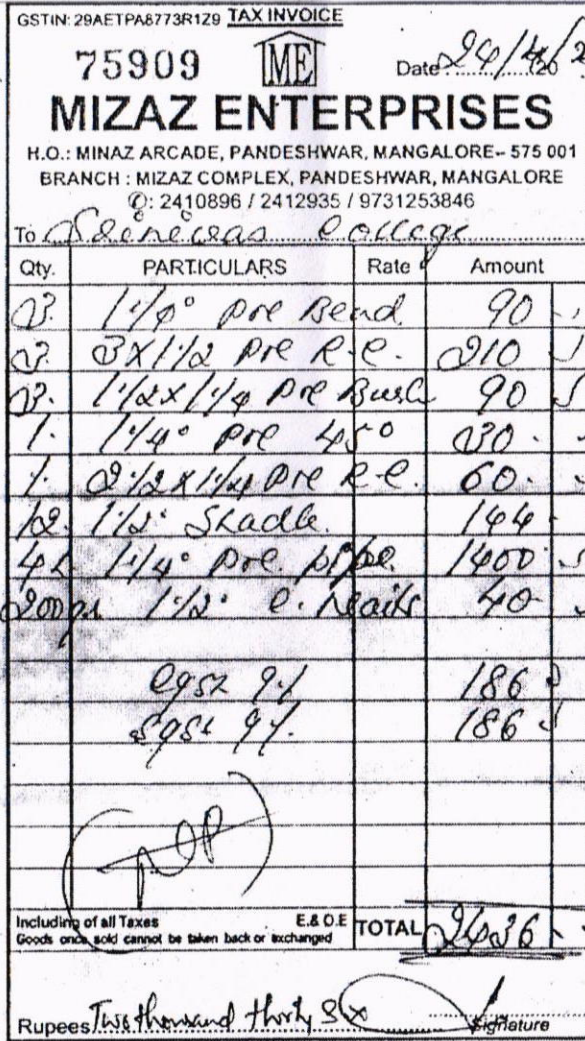 GSTIN: 29AETPA8773R1Z9 TAX INVOICE
75909 ME Date 24/4/20
MIZAZ ENTERPRISES
H.O.: MINAZ ARCADE, PANDESHWAR, MANGALORE-- 575 001
BRANCH : MIZAZ COMPLEX, PANDESHWAR, MANGALORE
✆: 2410896 / 2412935 / 9731253846
To Srinivas College
Qty. PARTICULARS Rate Amount
3. 1 1/4" pvc Bend 90
3. 3X1 1/2 pvc R.e. 210
3. 1 1/2X1 1/4 pvc Bush 90
1. 1 1/4" pvc 45° 30
1. 2 1/2X1 1/4 pvc R.e. 60
12. 1 1/2" Shadle 144
4L 1 1/4" pvc. pipe 1400
200gr 1 1/2" c. nails 40
cgst 9% 186
sgst 9% 186
Including of all Taxes E.& O.E TOTAL 2436
Goods once sold cannot be taken back or exchanged
Rupees Two thousand thirty Six
Signature